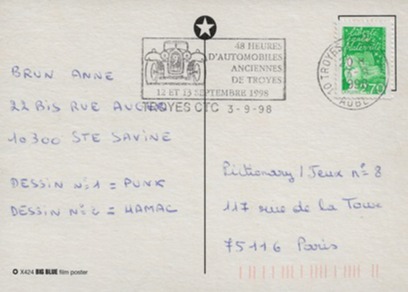 48 HEURES
D'AUTOMOBILES
ANCIENNES
DE TROYES
12 ET 13 SEPTEMBRE 1998
TROYES CTC 3-9-98
10 TROYES
AUBE
BRUN ANNE
22 BIS RUE
10300 STE SAVINE
DESSIN N°1 = PUNK
DESSIN N°2 = HAMAC
Pictionary / Jeux n°8
117 rue de la Tour
75116 Paris
X424 BIG BLUE film poster